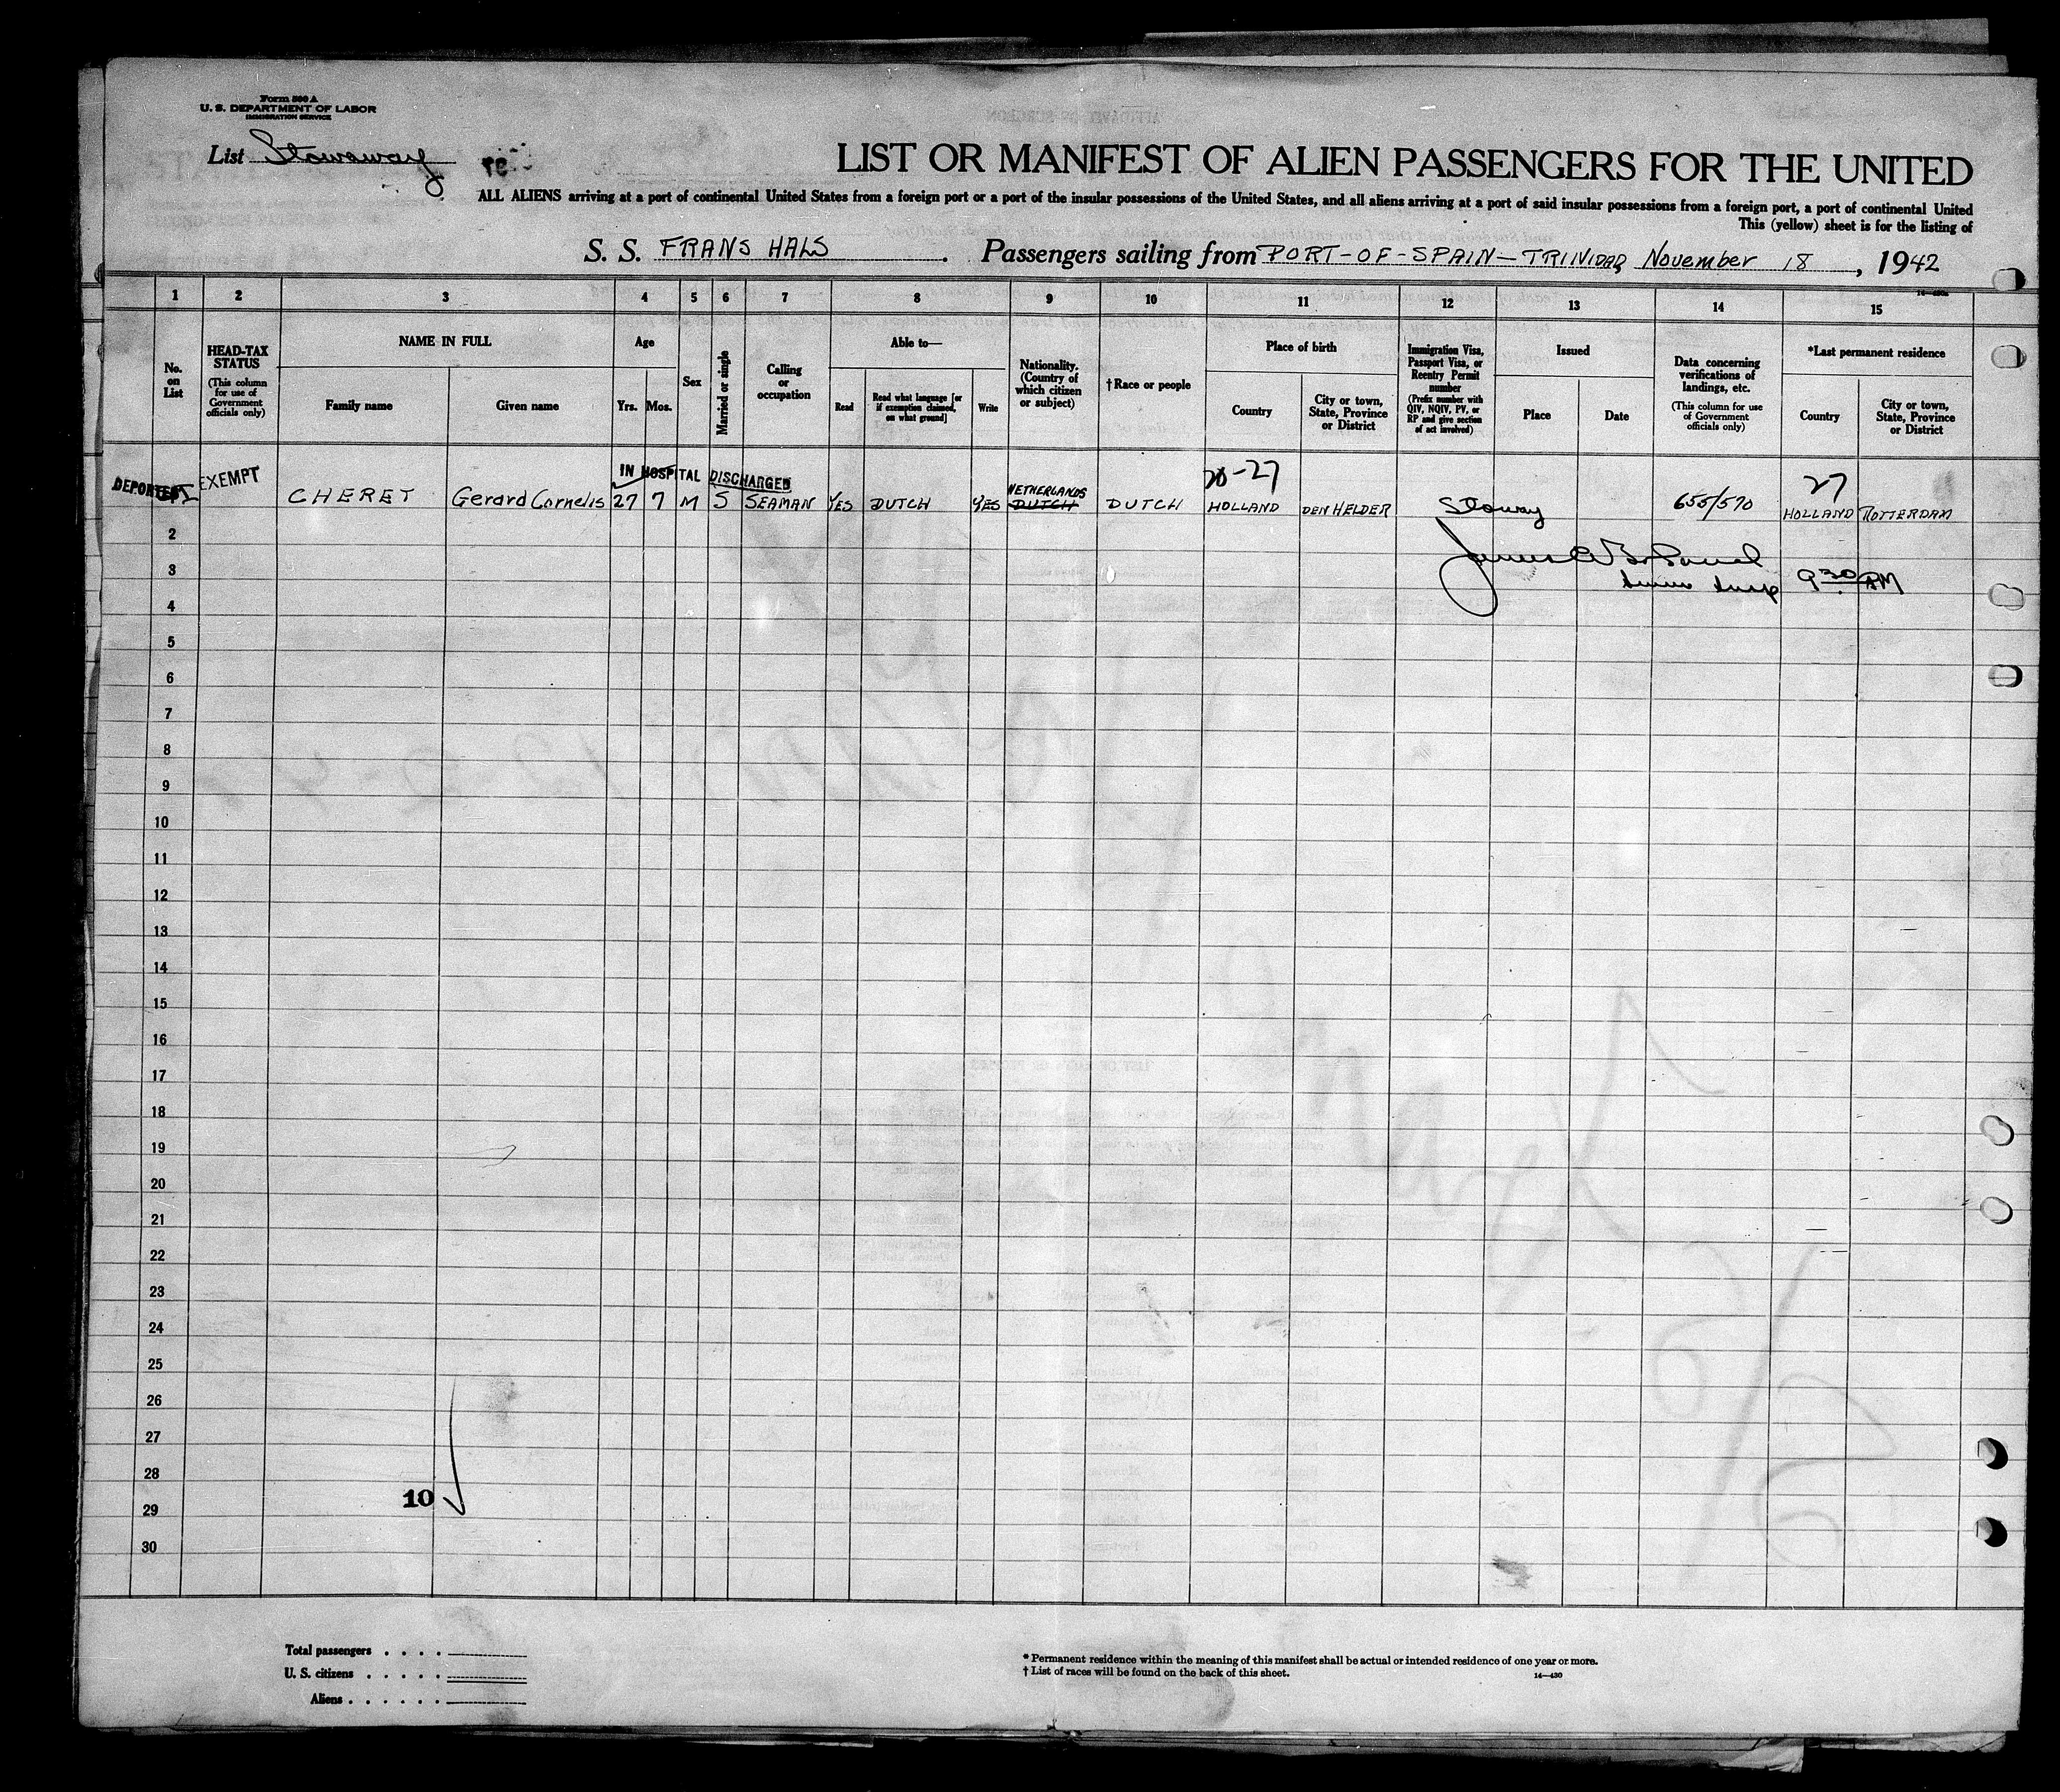 Form 500 A
U. S. DEPARTMENT OF LABOR
IMMIGRATION SERVICE
List Stowaway
LIST OR MANIFEST OF ALIEN PASSENGERS FOR THE UNITED
ALL ALIENS arriving at a port of continental United States from a foreign port or a port of the insular possessions of the United States, and all aliens arriving at a port of said insular possessions from a foreign port, a port of continental United
This (yellow) sheet is for the listing of
S. S. FRANS HALS . Passengers sailing from PORT-OF-SPAIN-TRINIDAD, November 18, 1942
1 2 3 4 5 6 7 8 9 10 11 12 13 14 15
No. on List
HEAD-TAX STATUS
(This column for use of Government officials only)
NAME IN FULL
Family name
Given name
Age
Yrs. Mos.
Sex
Married or single
Calling or occupation
Able to—
Read
Read what language [or if exemption claimed, on what ground]
Write
Nationality. (Country of which citizen or subject)
†Race or people
Place of birth
Country
City or town, State, Province or District
Immigration Visa, Passport Visa, or Reentry Permit number
(Prefix number with QIV, NQIV, PV, or RP and give section of act involved)
Issued
Place
Date
Data concerning verifications of landings, etc.
(This column for use of Government officials only)
*Last permanent residence
Country
City or town, State, Province or District
IN HOSPITAL DISCHARGED
-27
27
DEPORTED EXEMPT
NETHERLANDS
CHERET Gerard Cornelis 27 7 M S SEAMAN YES DUTCH YES DUTCH DUTCH HOLLAND DEN HELDER Stoway 655/570 HOLLAND ROTTERDAM
9 30 AM
2
3
4
5
6
7
8
9
10
11
12
13
14
15
16
17
18
19
20
21
22
23
24
25
26
27
28
10
29
30
Total passengers . . . .
U. S. citizens . . . . .
Aliens . . . . . .
* Permanent residence within the meaning of this manifest shall be actual or intended residence of one year or more.
† List of races will be found on the back of this sheet.
14—430